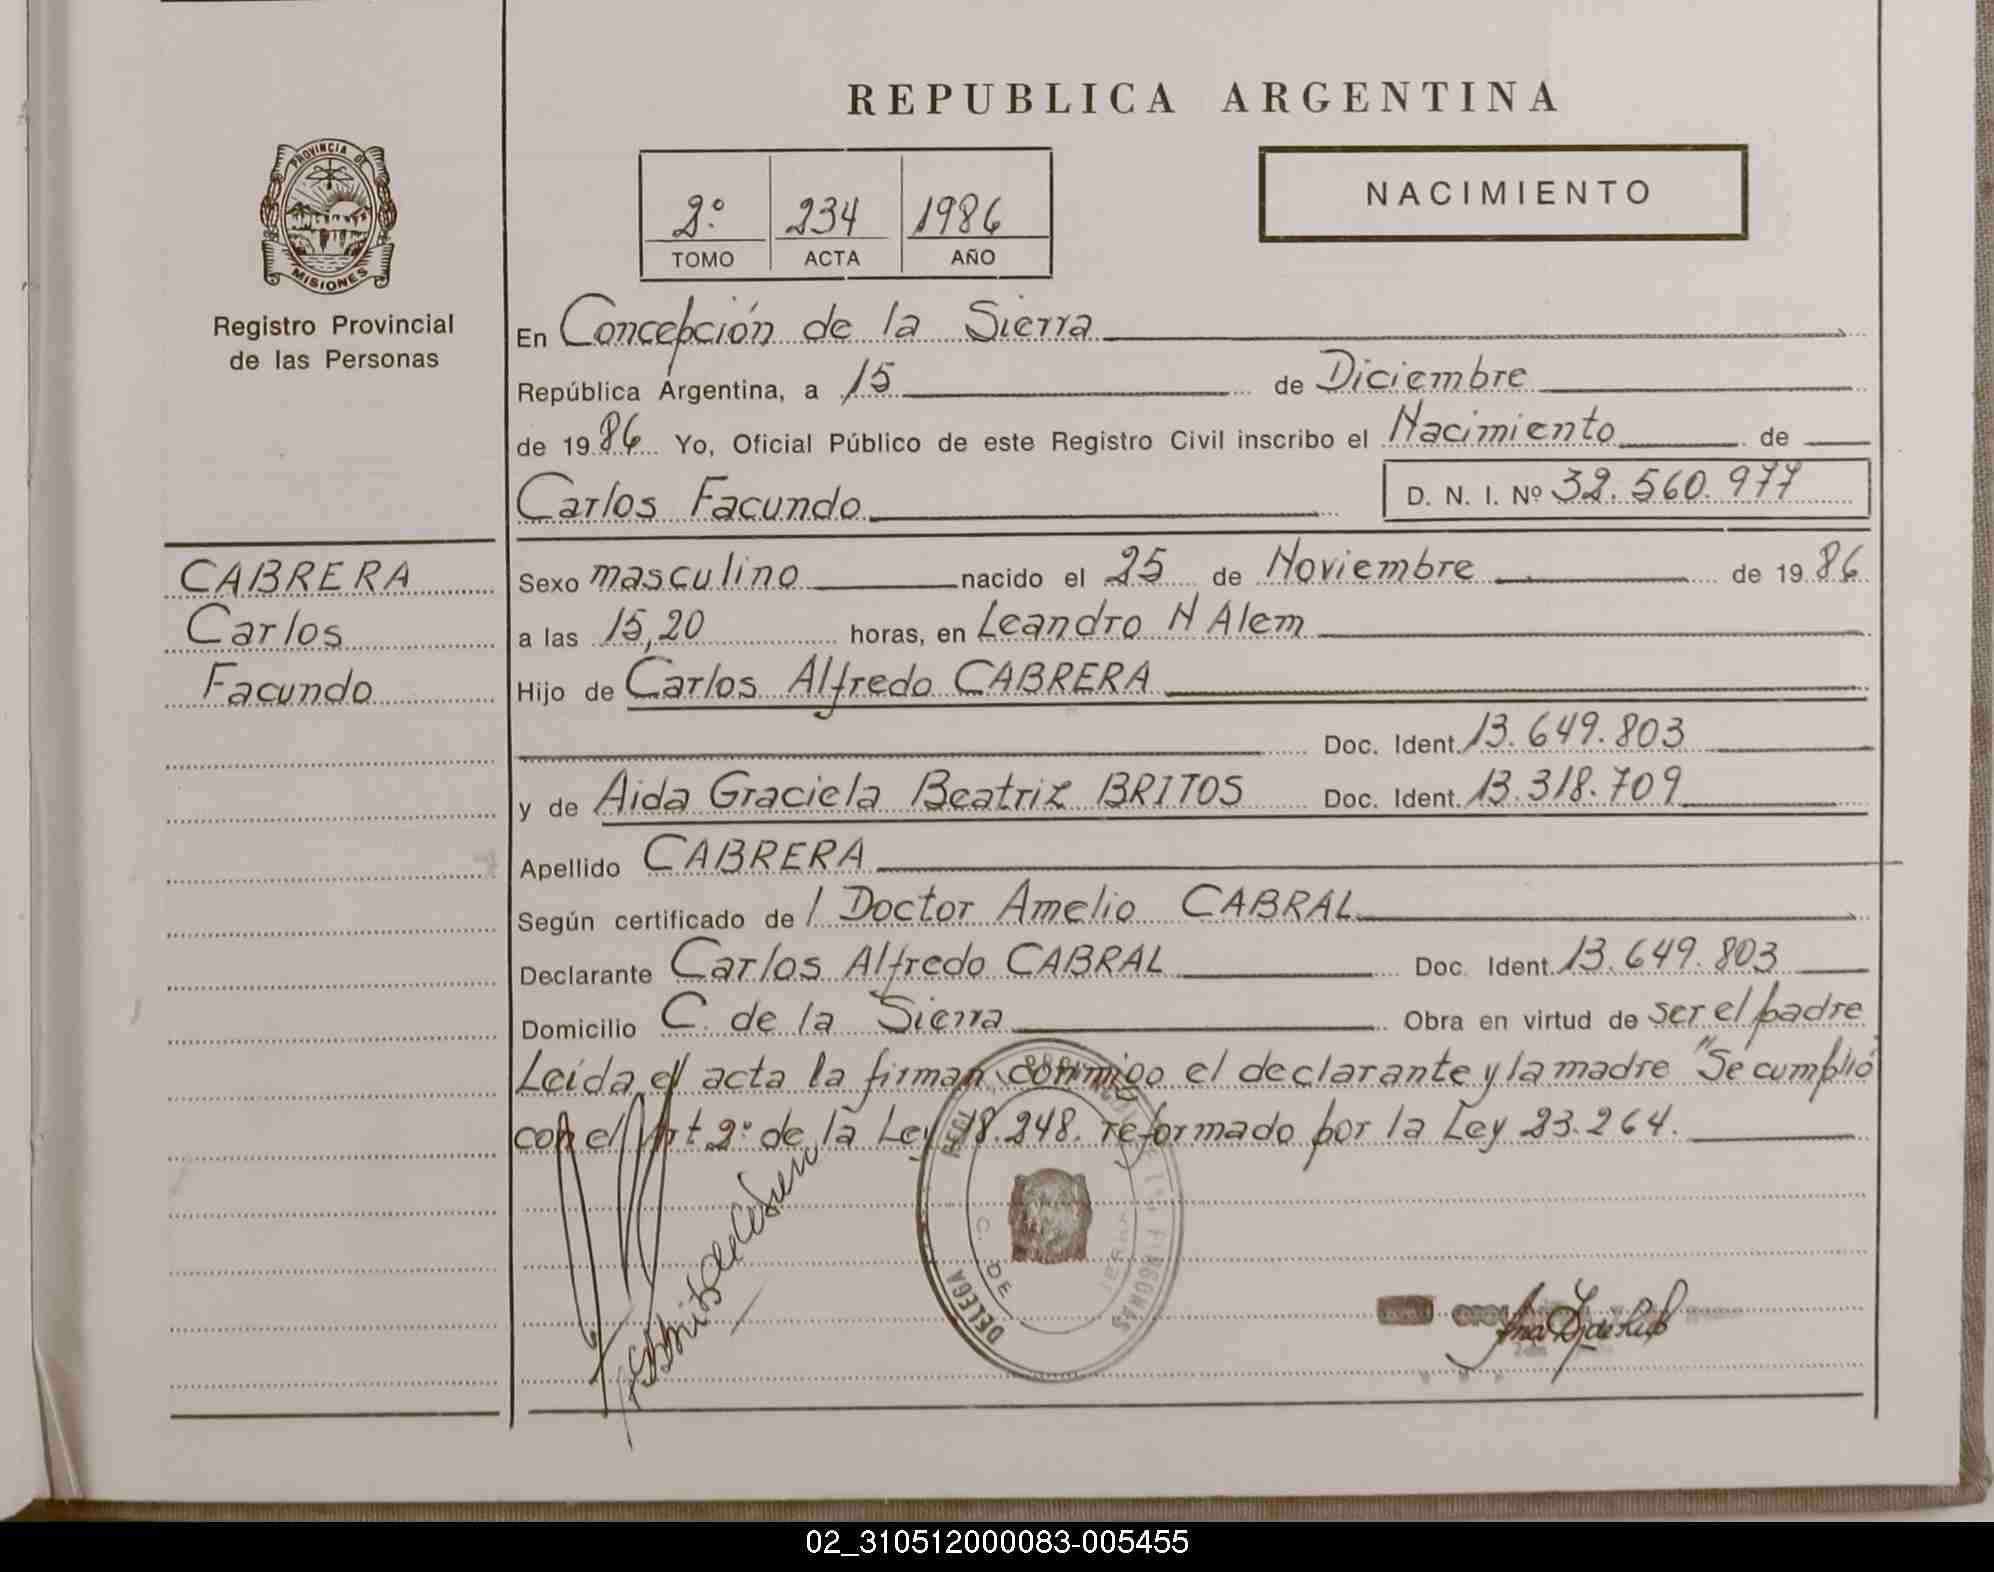 REPUBLICA ARGENTINA
PROVINCIA DE
MISIONES
Registro Provincial
de las Personas
2º 234 1986
TOMO ACTA AÑO
NACIMIENTO
En Concepción de la Sierra
República Argentina, a 15 de Diciembre
de 19 86 Yo, Oficial Público de este Registro Civil inscribo el Nacimiento de
Carlos Facundo D. N. I. Nº 32.560.977
CABRERA
Carlos
Facundo
Sexo masculino nacido el 25 de Noviembre de 19 86
a las 15,20 horas, en Leandro N Alem
Hijo de Carlos Alfredo CABRERA
Doc. Ident. 13.649.803
y de Aida Graciela Beatriz BRITOS Doc. Ident. 13.318.709
Apellido CABRERA
Según certificado de / Doctor Amelio CABRAL
Declarante Carlos Alfredo CABRAL Doc. Ident. 13.649.803
Domicilio C. de la Sierra Obra en virtud de ser el padre
Leída el acta la firman conmigo el declarante y la madre "Se cumplió
con el Art 2º de la Ley 18.248. reformado por la Ley 23.264.
DELEGA
C. DE
02_310512000083-005455